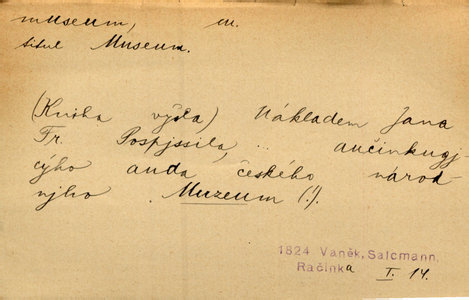 museum, m.
titul Museum.
(Kniha vyšla) Nákladem Jana
Fr. Pospjssila, .. aučinkugj
cýho auda českého národ-
njho Muzeum (!).
1824 Vaněk, Salcmann,
Račinka I. 14.